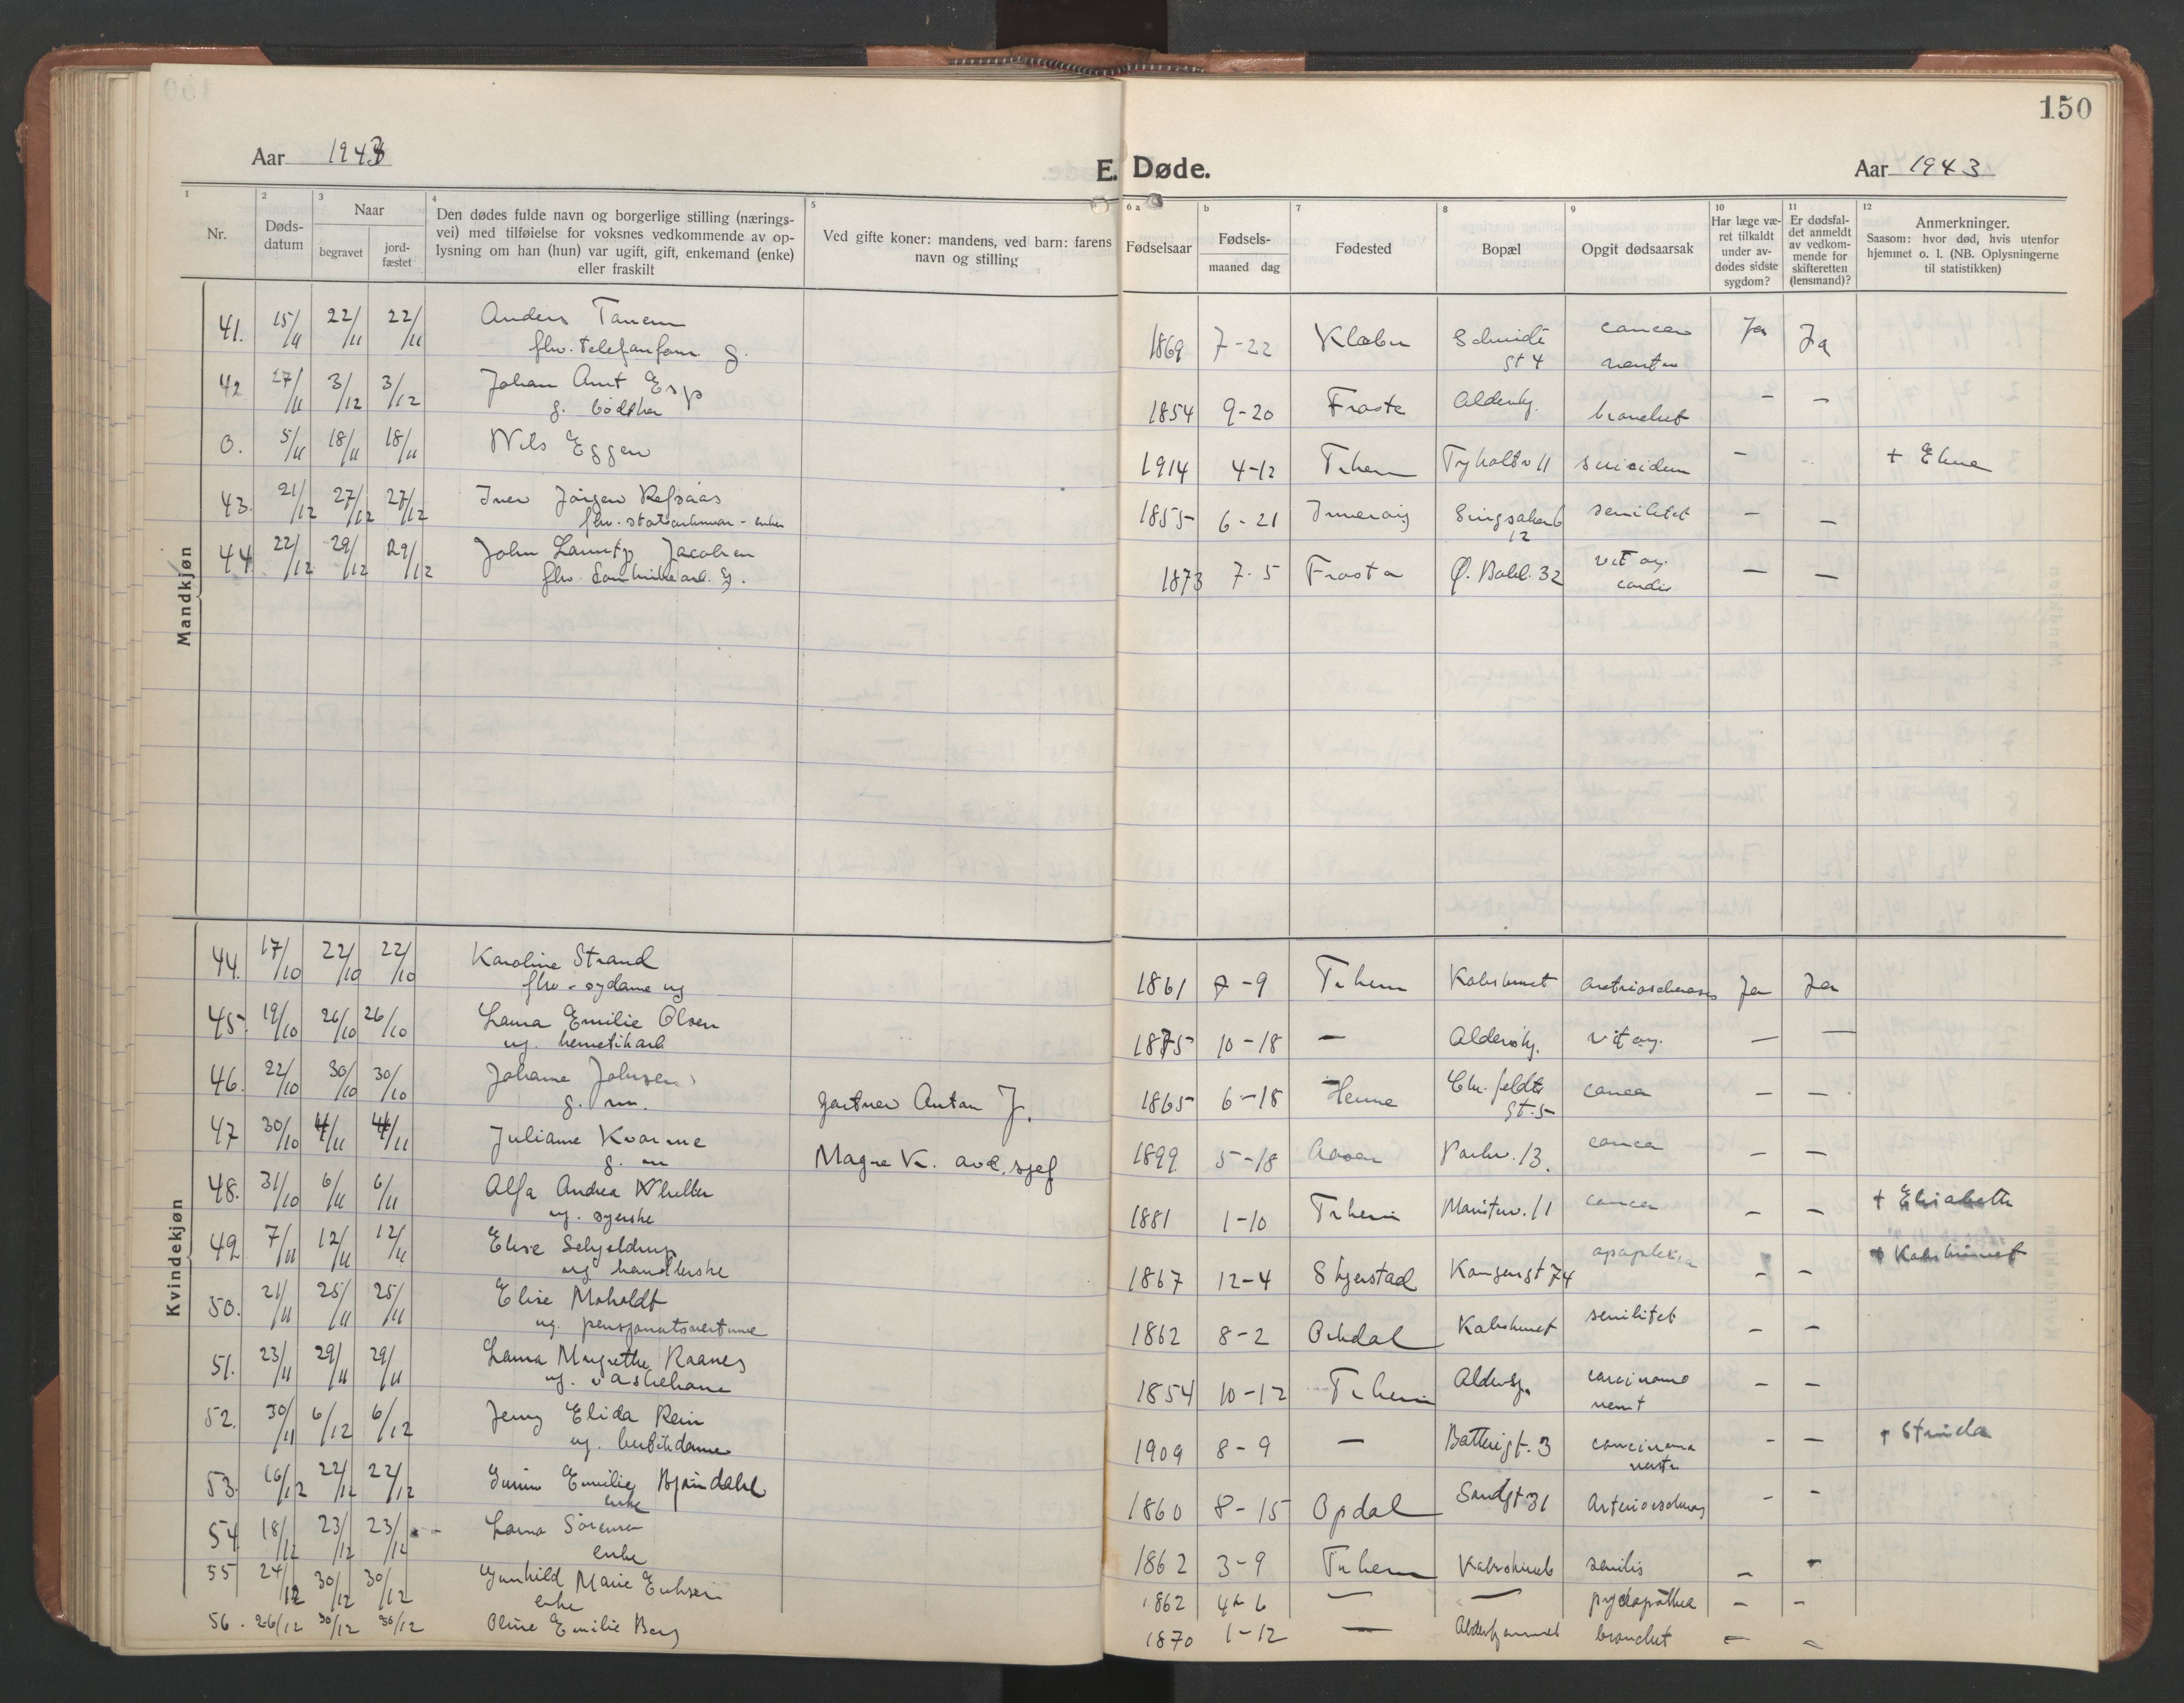 150
Aar 1943
E. Døde.
Aar 1943
1 2 3 4 5 6 a b 7 8 9 10 11 12
Nr.
Døds-
datum
Naar
begravet
jord-
fæstet
Den dødes fulde navn og borgerlige stilling (nærings-
vei) med tilføielse for voksnes vedkommende av op-
lysning om han (hun) var ugift, gift, enkemand (enke)
eller fraskilt
Ved gifte koner: mandens, ved barn: farens
navn og stilling
Fødselsaar
Fødsels-
maaned dag
Fødested
Bopæl
Opgit dødsaarsak
Har læge væ-
ret tilkaldt
under av-
dødes sidste
sygdom?
Er dødsfal-
det anmeldt
av vedkom-
mende for
skifteretten
(lensmand)?
Anmerkninger.
Saasom: hvor død, hvis utenfor
hjemmet o. l. (NB. Oplysningerne
til statistikken)
Mandkjøn
41. 15/11 22/11 22/11 Anders Tanem 1869 7-22 Klæbu Schmidts cancer Ja Ja
flv. telefonform. g. gt 4 ventr
42 27/11 3/12 3/12 Johan Arnt Esp 1854 9-20 Frosta Aldershj. bronchit - -
g. bødtker
0. 5/11 18/11 18/11 Nils Eggen 1914 4-12 Trhem Tyholtv 11 suicidum - - + Elven
43. 21/12 27/12 27/12 Iver Jørgen Refsaas 1855 6-21 Inderøy Singsakerb senilitet - -
flv. - enkem 12
44 22/12 29/12 29/12 John Lauritz Jacobsen 1873 7-5 Frosta Ø. Bakl. 32 vit org. - -
flv. g. cordis
Kvindekjøn
44. 17/10 22/10 22/10 Karoline Strand 1861 7-9 Trhem Kabshuset Ja Ja
flv - sydame ug
45. 19/10 26/10 26/10 Laura Emilie Olsen 1875 10-18 - Aldershj. vit org. - -
ug. hermetikarb
46. 22/10 30/10 30/10 Johanne Johnsen gartner Anton J. 1865 6-18 Hemne Chr. feldts cancer - -
g. m. gt. 5
47 30/10 4/11 4/11 Juliane Kvarme Magne K. avd. sjef 1899 5-18 Parkv. 13. cancer - -
g. m
48. 31/10 6/11 6/11 Alfa Andrea 1881 1-10 Trhem 11 cancer - - + Elisabeth
ug. syerske
49 7/11 12/11 12/11 Elise Schjeldrup 1867 12-4 Skjerstad Kongensgt 74 apoplexia - - + Kabshuset
ug handlerske
50. 21/11 25/11 25/11 Elise Moholdt 1862 8-2 Orkdal Kabshuset senilitet - -
ug. pensjonatsvertinne
51. 23/11 29/11 29/11 Laura Margrethe Raanes 1854 10-12 Trhem Aldershj. carcinoma - -
ug. vaskekone vent
52. 30/11 6/12 6/12 Jenny Elida Rein 1909 8-9 - Batterigt. 3 carcinoma - - + Strinda
ug. butikdame ventr
53. 16/12 22/12 22/12 Emilie Bjørndahl 1860 8-15 Opdal Sandgt 31 - -
enke
54 18/12 23/12 23/12 Laura Sørensen 1862 3-9 Trhem Kabshuset senilis - -
enke
55 24/12 30/12 30/12 Gunhild Marie Eriksen 1862 4-6 - - - -
enke
56. 26/12 30/12 30/12 Oline Emilie Berg 1870 1-12 - Aldershjemmet bronchit - -